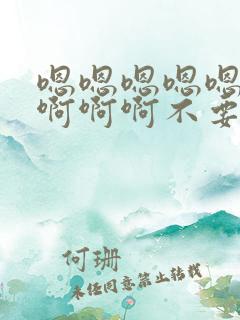 嗯嗯嗯嗯嗯
啊啊啊不要
何珊
未经同意禁止转载